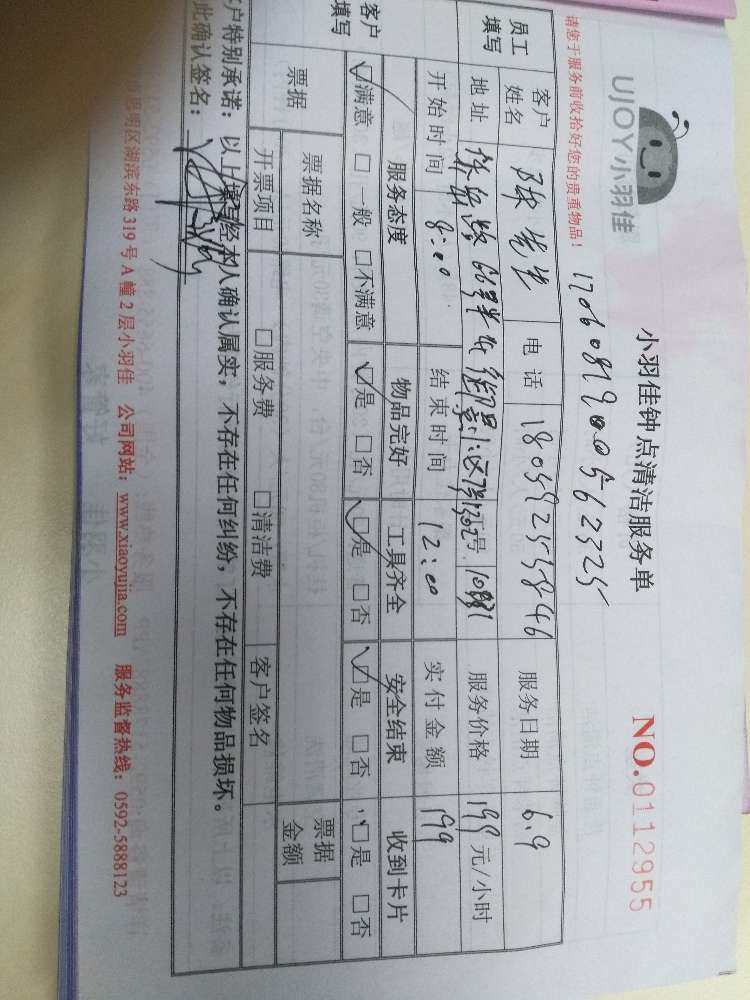 UJOY小羽佳
小羽佳钟点清洁服务单
NO.0112955
请您于服务前收拾好您的贵重物品！
1706081900562325
员工填写
客户姓名 陈先生 电话 18059255846 服务日期 6.9
地址 号 服务价格 199 元/小时
开始时间 8:00 结束时间 12:00 实付金额 199
客户填写
服务态度 物品完好 工具齐全 安全结束 收到卡片
☑满意 □一般 □不满意 ☑是 □否 ☑是 □否 ☑是 □否 ☑是 □否
票据 票据名称 票据金额
开票项目 □服务费 □清洁费 客户签名
户特别承诺：以上填写经本人确认属实，不存在任何纠纷，不存在任何物品损坏。
此确认签名：
市思明区湖滨东路319号A幢2层小羽佳 公司网站：www.xiaoyujia.com 服务监督热线：0592-5888123